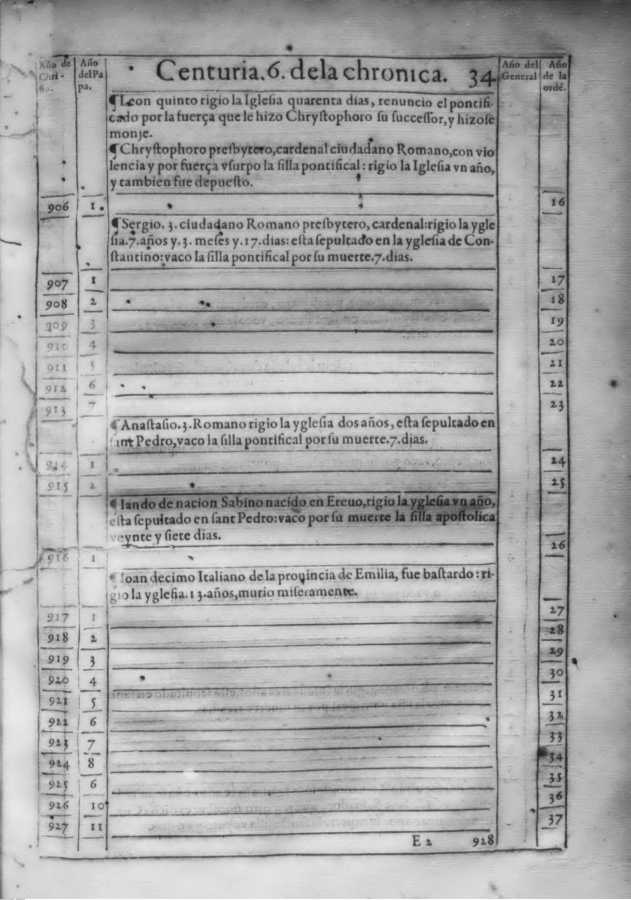 Año de Chri-sto. Año del Papa. Centuria.6. dela chronica. 34 Año del General Año de la ordẽ.
¶Leon quinto rigio la Iglesia quarenta dias, renuncio el pontifi-
cado por la fuerça que le hizo Chrystophoro su successor, y hizose
monje.
¶Chrystophoro presbytero, cardenal ciudadano Romano, con vio
lencia y por fuerça vsurpo la silla pontifical: rigio la Iglesia vn año,
y tambien fue depuesto.
906 1. 16
¶Sergio. 3. ciudadano Romano presbytero, cardenal: rigio la ygle
sia. 7. años y. 3. meses y. 17. dias: esta sepultado en la yglesia de Con-
stantino: vaco la silla pontifical por su muerte. 7. dias.
907 1 17
908 2 18
909 3 19
910 4 20
911 5 21
912 6 22
913 7 23
¶Anastasio. 3. Romano rigio la yglesia dos años, esta sepultado en
sant Pedro, vaco la silla pontifical por su muerte. 7. dias.
914 1 24
915 2 25
¶Iando de nacion Sabino nacido en Ereuo, rigio la yglesia vn año,
esta sepultado en sant Pedro: vaco por su muerte la silla apostolica
veynte y siete dias.
916 1 26
¶Ioan decimo Italiano de la prouincia de Emilia, fue bastardo: ri-
gio la yglesia. 13. años, murio miseramente.
917 1 27
918 2 28
919 3 29
920 4 30
921 5 31
922 6 32
923 7 33
924 8 34
925 6 35
926 10 36
927 11 37
E 2 928